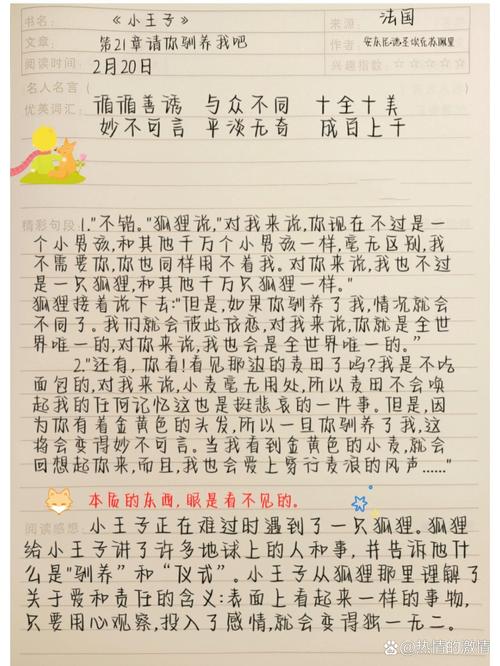 书名: 《小王子》 来源: 法国
文章: 第21章请你驯养我吧 作者: 安东尼·德·圣埃克苏佩里
阅读时间: 2月20日 兴趣指数: ☆☆☆☆☆
(名人名言)
优美词汇: 循循善诱 与众不同 十全十美
妙不可言 平淡无奇 成百上千
精彩句段: 1."不错。"狐狸说,"对我来说,你现在不过是一
个小男孩,和其他千万个小男孩一样,毫无区别,我
不需要你,你也同样用不着我。对你来说,我也不过
是一只狐狸,和其他千万只狐狸一样。"
狐狸接着说下去:"但是,如果你驯养了我,情况就会
不同了。我们就会彼此依恋,对我来说,你就是全世
界唯一的,对你来说,我也会是全世界唯一的。"
2."还有,你看!看见那边的麦田了吗?我是不吃
面包的,对我来说,小麦毫无用处,所以麦田不会唤
起我的任何记忆这也是挺悲哀的一件事。但是,因
为你有着金黄色的头发,所以一旦你驯养了我,这
将会变得妙不可言。当我看到金黄色的小麦,就会
回想起你来,而且,我也会爱上穿行麦浪的风声……"
本质的东西,眼是看不见的。
阅读感想: 小王子正在难过时遇到了一只狐狸。狐狸
给小王子讲了许多地球上的人和事,并告诉他什
么是"驯养"和"仪式"。小王子从狐狸那里理解了
关于爱和责任的含义:表面上看起来一样的事物,
只要用心观察,投入了感情,就会变得独一无二。
@热情的激情